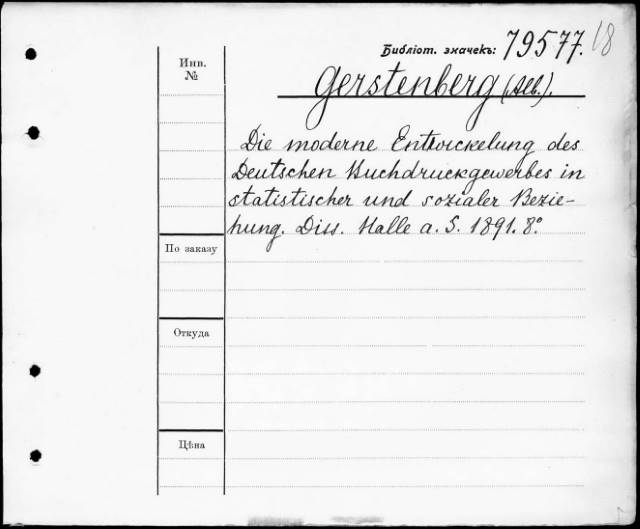 Библіот. значекъ: 79577. 18
Инв.
№
Gerstenberg (Alb.).
Die moderne Entwickelung des
Deutschen Buchdruckgewerbes in
statistischer und sozialer Bezie-
hung. Diss. Halle a. S. 1891. 8°.
По заказу
Откуда
Цѣна